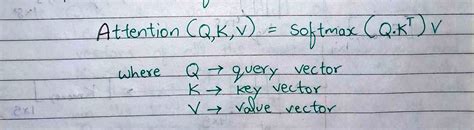 Attention (Q,K,V) = Softmax (Q.Kᵀ) V
where Q → query vector
K → key vector
V → value vector